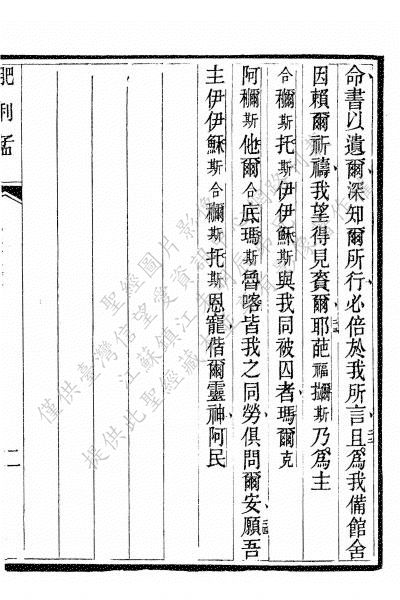 命書以遺爾深知爾所行必倍於我所言且爲我備館舍
因賴爾祈禱我望得見賚爾耶葩福擸斯乃爲主
合穪斯托斯伊伊穌斯與我同被囚者瑪爾克
阿穪斯他爾合底瑪斯魯喀皆我之同勞俱問爾安願吾
主伊伊穌斯合穪斯托斯恩寵偕爾靈神阿民
肥利孟
二
聖經圖片影像
僅供臺灣信望愛資訊
江蘇鎮江
提供此聖經藏